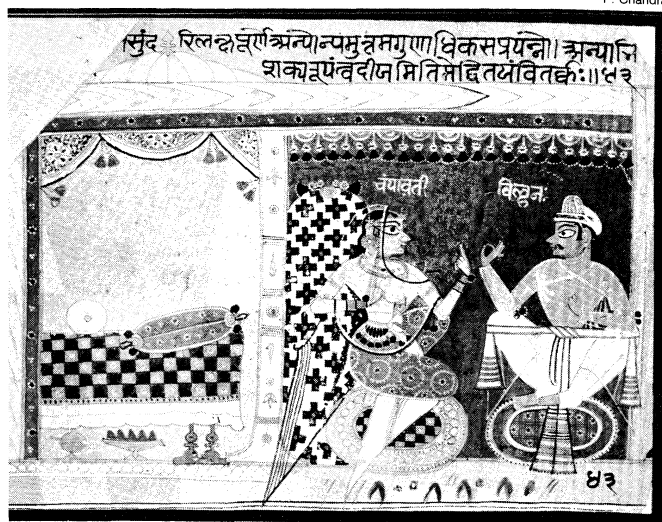 P. Chandra
सुंद रिलक्षपूर्णअन्योन्यमुत्तमगुणाधिकसप्रपन्नो। अन्यानि
शक्यरूपंत्वदीजमितिमेद्वितयंवितर्कः॥५३
चंपावती
विल्हनः
५३